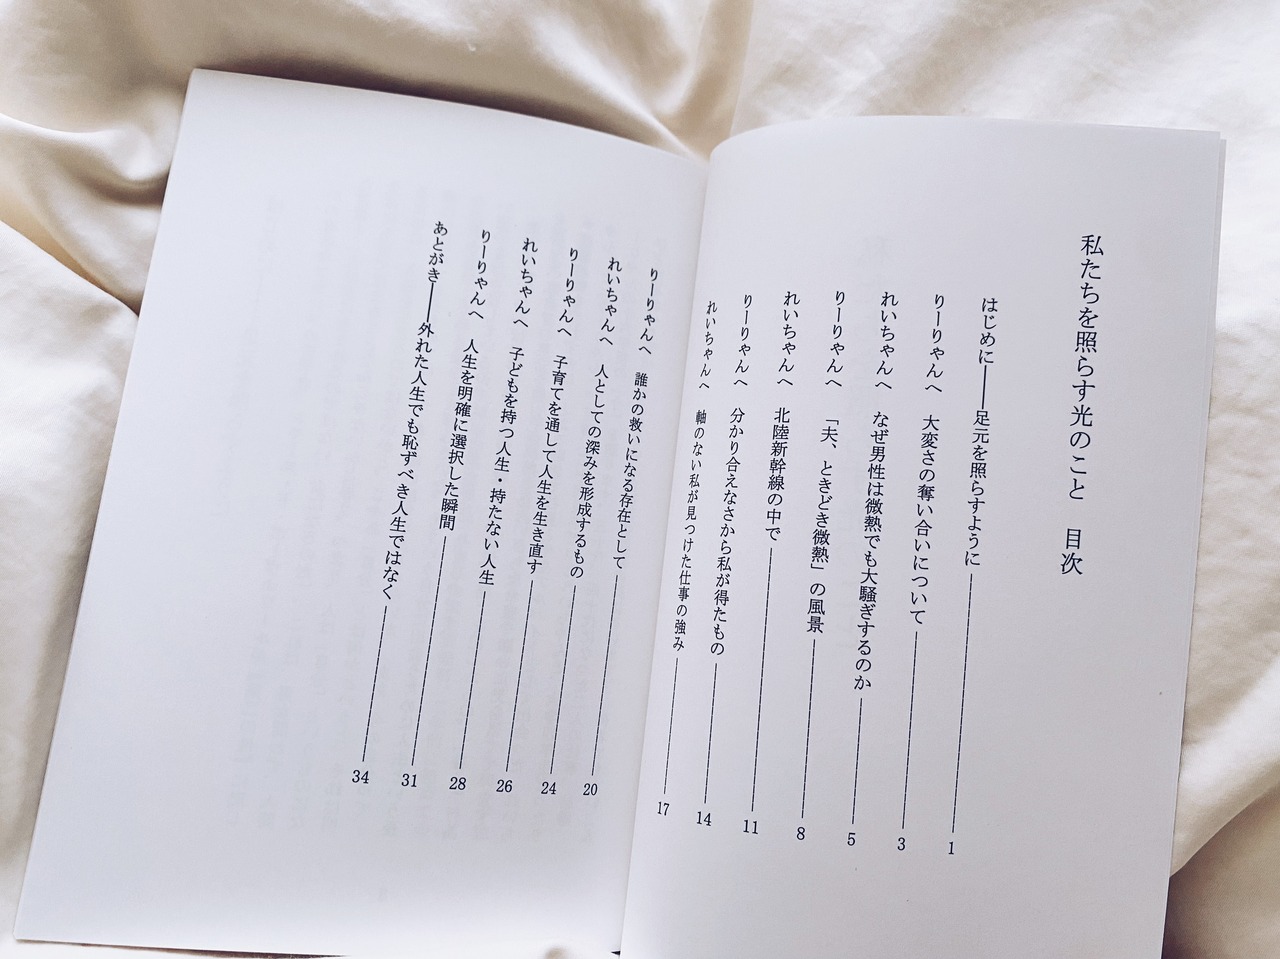 私たちを照らす光のこと　目次
はじめに――足元を照らすように――1
りーりゃんへ　大変さの奪い合いについて――3
れいちゃんへ　なぜ男性は微熱でも大騒ぎするのか――5
りーりゃんへ　「夫、ときどき微熱」の風景――8
れいちゃんへ　北陸新幹線の中で――11
りーりゃんへ　分かり合えなさから私が得たもの――14
れいちゃんへ　軸のない私が見つけた仕事の強み――17
りーりゃんへ　誰かの救いになる存在として――20
れいちゃんへ　人としての深みを形成するもの――24
りーりゃんへ　子育てを通して人生を生き直す――26
れいちゃんへ　子どもを持つ人生・持たない人生――28
りーりゃんへ　人生を明確に選択した瞬間――31
あとがき――外れた人生でも恥ずべき人生ではなく――34